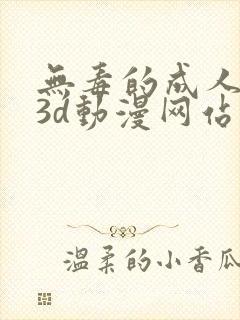 無毒的成人
3d動漫网佔
温柔的小香瓜